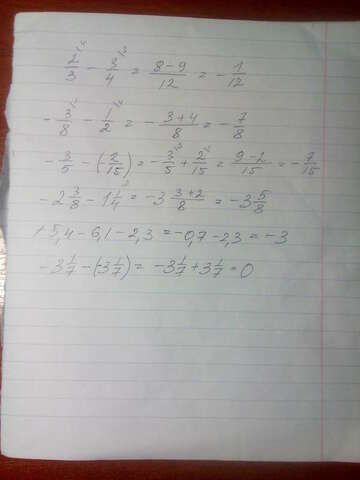 2/3 \4 - 3/4 \3 = 8-9/12 = - 1/12
- 3/8 - 1/2 \4 = - 3+4/8 = - 7/8
- 3/5 - (-2/15) = - 3/5 \3 + 2/15 = 9-2/15 = - 7/15
- 2 3/8 - 1 1/4 \2 = -3 3+2/8 = -3 5/8
5,4 - 6,1 - 2,3 = -0,7 - 2,3 = -3
- 3 1/7 - (-3 1/7) = - 3 1/7 + 3 1/7 = 0